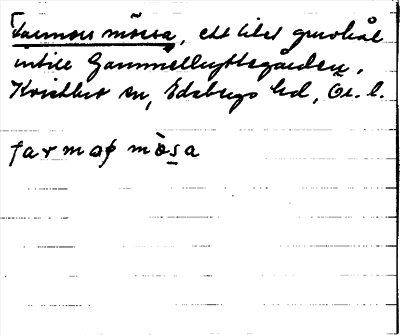 Farmors mössa, ett litet gruvhål
intill Gammelhyttegården,
Kvistbro sn, Edsbergs hd, Ör. l.
farmoṣ mòsa